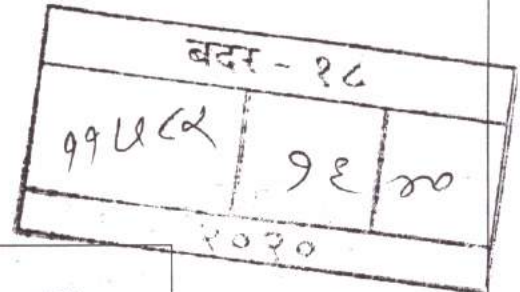 बदर - १८
११५८४ १६ ४०
२०२०